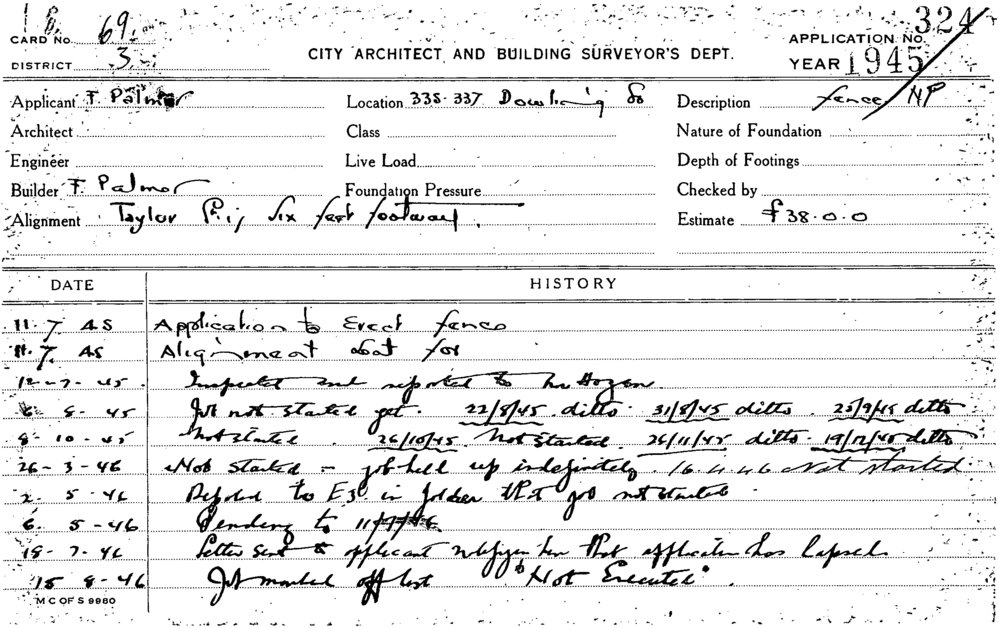 1 B.
CARD No. 69.
DISTRICT 3
CITY ARCHITECT AND BUILDING SURVEYOR'S DEPT.
APPLICATION No. 324
YEAR 1945
Applicant F. Palmer
Location 335-337 Dowling St
Description fence NP
Architect
Class
Nature of Foundation
Engineer
Live Load
Depth of Footings
Builder F. Palmer
Foundation Pressure
Checked by
Alignment Taylor six feet footway.
Estimate £38.0.0
DATE HISTORY
11. 7. 45 Application to Erect fence
11. 7. 45 Alignment for
12 - 7 - 45. Inspected and reported to Mr Hogan.
6 8 - 45 Job not started yet. 22/8/45 ditto. 31/8/45 ditto. 25/9/45 ditto
8 - 10 - 45 Not started. 26/10/45 Not started. 26/11/45 ditto. 19/12/45 ditto
26 - 3 - 46 Not started - job held up indefinitely. 16.4.46 Not started
2 5 - 46 to in folder that job not started
6. 5 - 46 Pending to 11/7/46.
18 - 7 - 46 Letter sent to applicant notifying him that application has lapsed.
15 8 - 46 Job marked off list "Not Executed".
M C OF S 9980